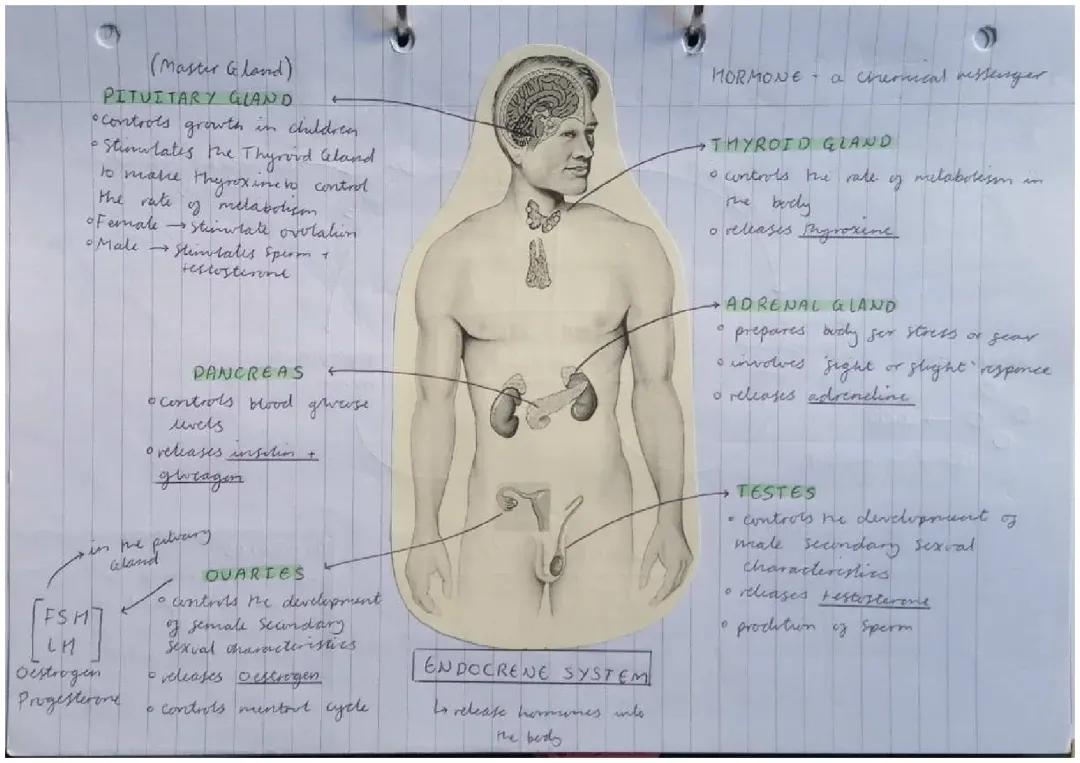 (Master Gland)
PITUITARY GLAND
• controls growth in children
• Stimulates the Thyroid Gland
to make thyroxine to control
the rate of metabolism
• Female → stimulate ovulation
• Male → stimulates sperm +
testosterone
PANCREAS
• controls blood glucose
levels
• releases insulin +
glucagon
in the pituary
Gland
OVARIES
• controls the development
of female secondary
sexual characteristics
• releases oestrogen
• controls mentrul cycle
[FSH
LH]
Oestrogen
Progesterone
HORMONE - a chemical messenger
THYROID GLAND
• controls the rate of metabolism in
the body
• releases thyroxine
ADRENAL GLAND
• prepares body for stress or fear
• involves 'fight or flight' responce
• releases adreneline
TESTES
• controls the development of
male secondary sexual
characteristics
• releases testosterone
• prodution of sperm
ENDOCRENE SYSTEM
↳ release hormones into
the body